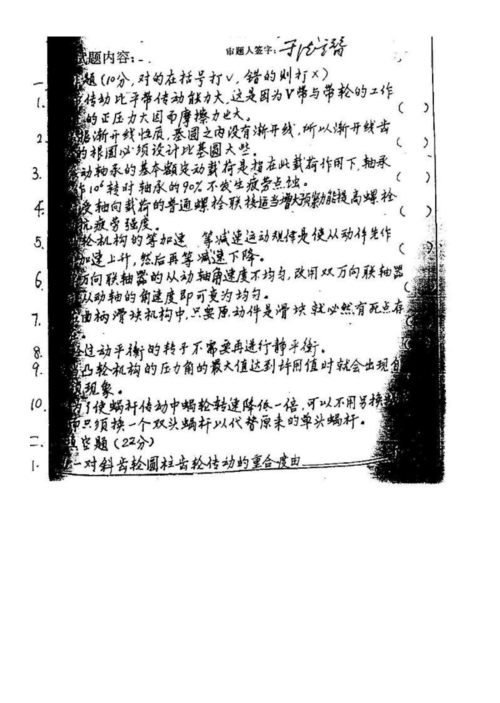 试题内容:
审题人签字:
一 题(10分,对的在括号打∨,错的则打×)
1. 传动比平带传动能力大,这是因为V带与带轮的工作
的正压力大因而摩擦力也大。 ( )
2. 据渐开线性质,基圆之内没有渐开线,所以渐开线齿
的根圆必须设计比基圆大些。 ( )
3. 动轴承的基本额定动载荷是指在此载荷作用下,轴承
10⁶转时轴承的90%不发生疲劳点蚀。 ( )
4. 受轴向载荷的普通螺栓联接适当增大预紧力能提高螺栓
抗疲劳强度。 ( )
5. 轮机构的等加速 等减速运动规律是使从动件先作
加速上升,然后再等减速下降。 ( )
6. 万向联轴器的从动轴角速度不均匀,改用双万向联轴器
从动轴的角速度即可变为均匀。 ( )
7. 曲柄滑块机构中,只要原动件是滑块就必然有死点存
。
8. 过动平衡的转子不需要再进行静平衡。
9. 凸轮机构的压力角的最大值达到许用值时就会出现自
现象。
10. 了使蜗杆传动中蜗轮转速降低一倍,可以不用另换
只须换一个双头蜗杆以代替原来的单头蜗杆。
二. 空题(22分)
1. 一对斜齿轮圆柱齿轮传动的重合度由